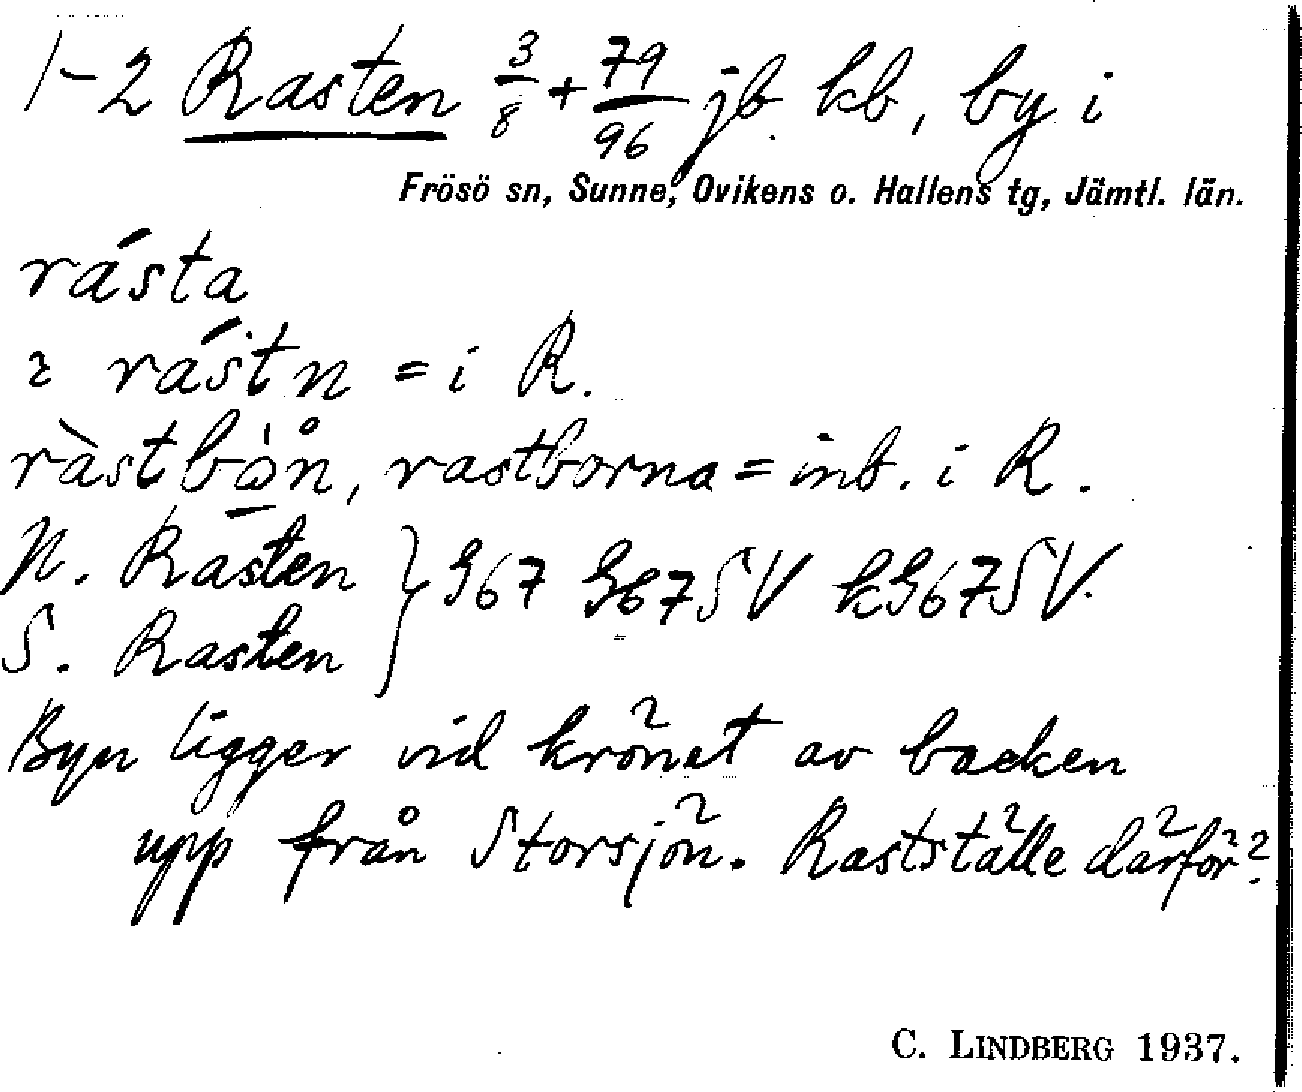 1-2 Rasten 3/8 + 79/96 jb kb, by i
Frösö sn, Sunne, Ovikens o. Hallens tg, Jämtl. län.
rásta
ɪ rástn = i R.
ràstbån, rastborna = inb. i R.
N. Rasten } G67 G67SV kG67SV.
S. Rasten
Byn ligger vid krönet av backen
upp från Storsjön. Rastställe därför?
C. LINDBERG 1937.